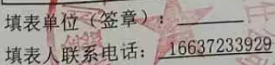 填表单位（签章）：
填表人联系电话：16637233929